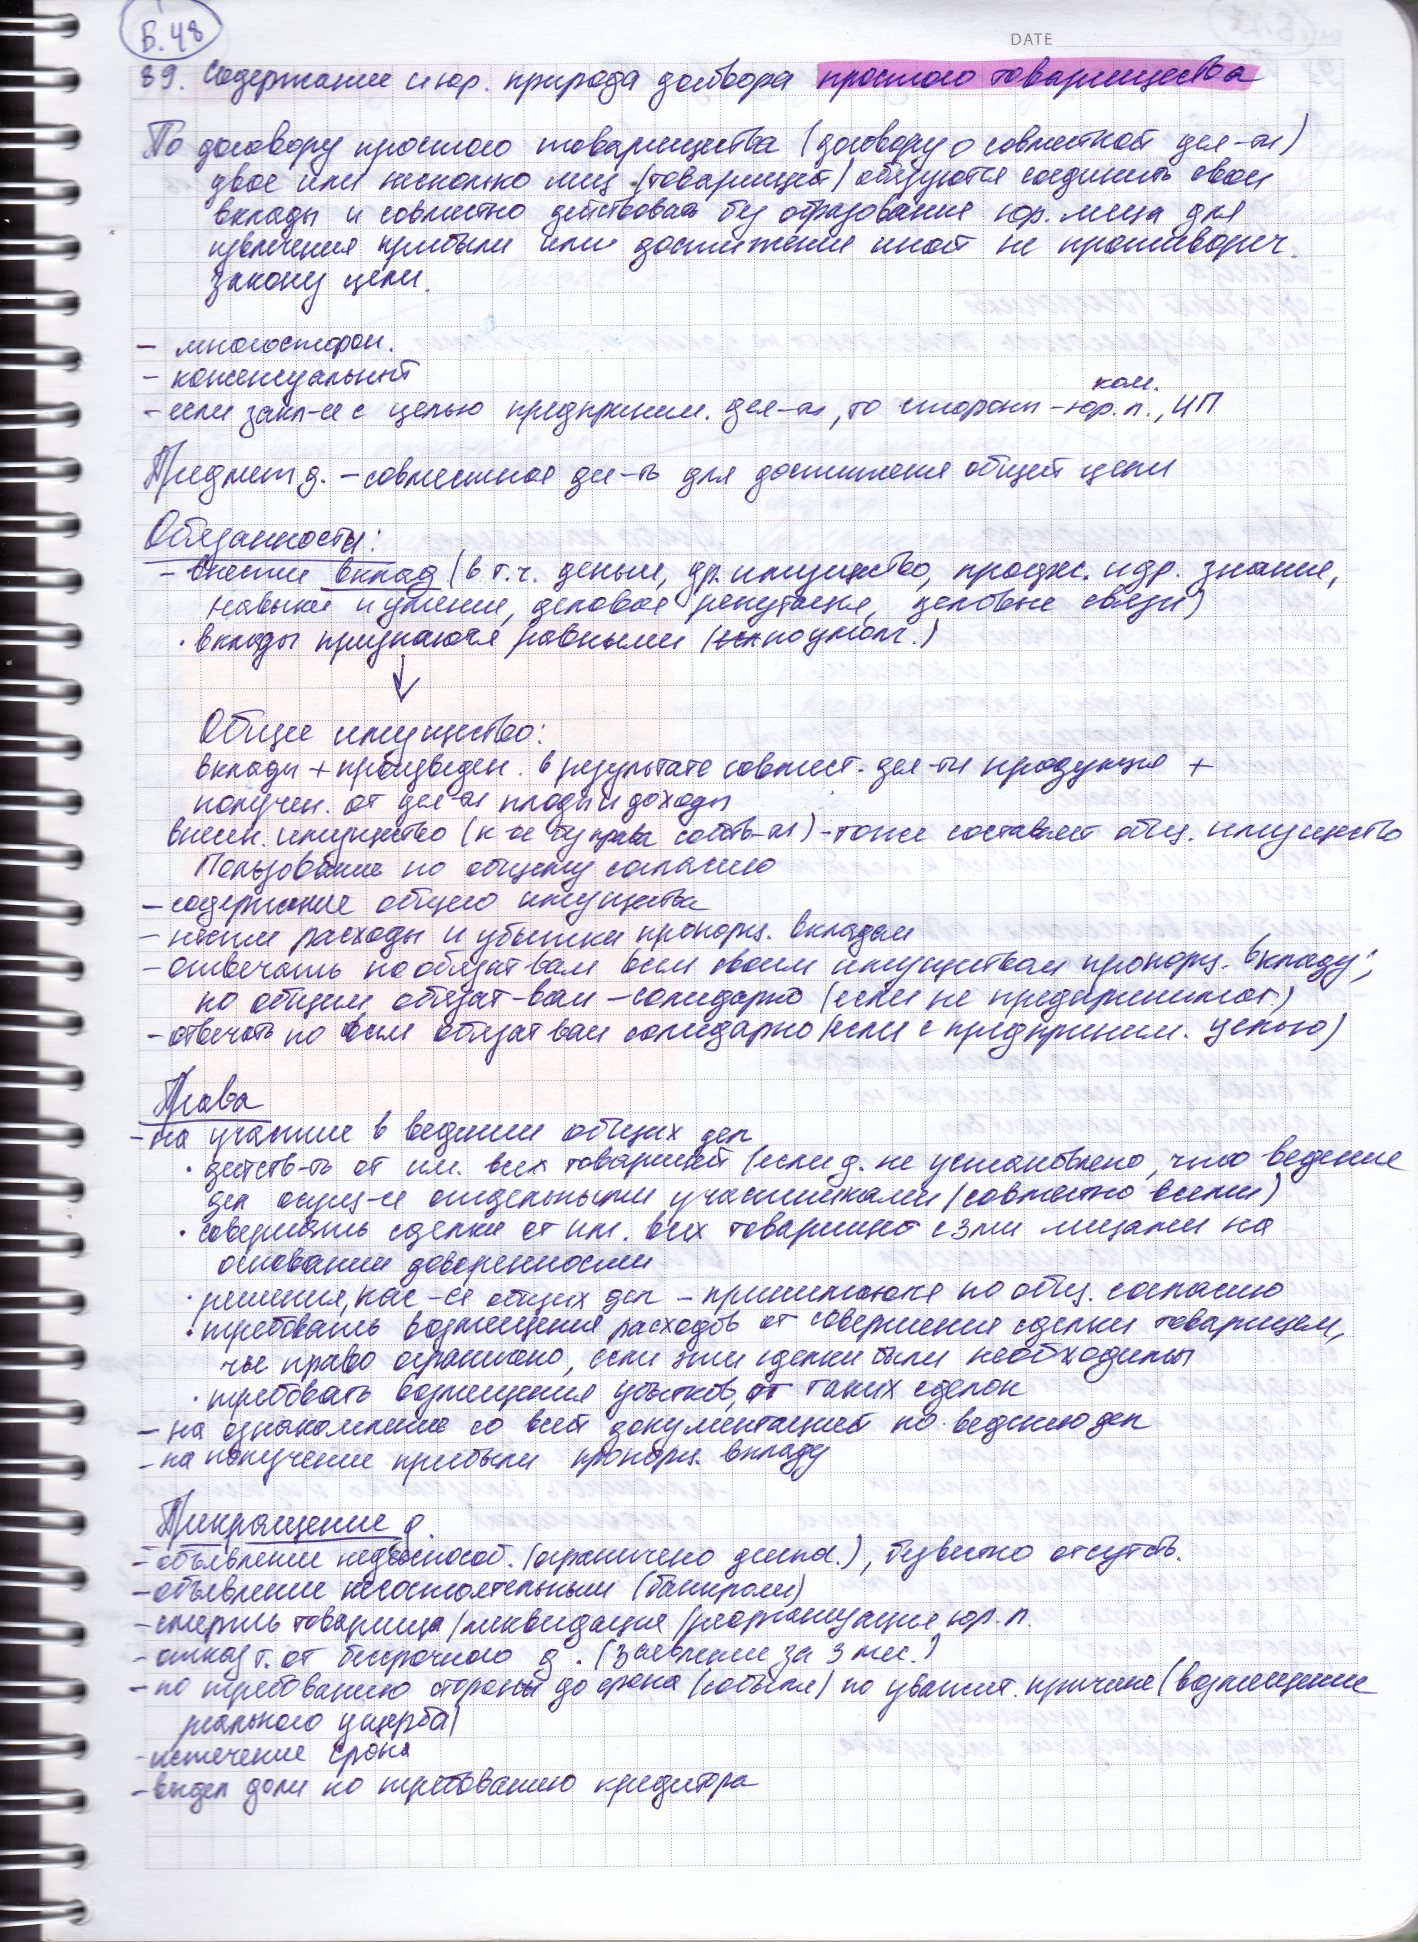 Б.48
DATE
39. Содержание и юр. природа договора простого товарищества
По договору простого товарищества (договору о совместной дея-ти)
двое или несколько лиц (товарищей) обязуются соединить свои
вклады и совместно действовать без образования юр. лица для
извлечения прибыли или достижения иной не противореч.
закону цели.
- многосторон.
- консенсуальный
ком.
- если закл-ся с целью предприним. дея-ти, то стороны - юр.л., ИП
Предмет д. - совместная дея-ть для достижения общей цели
Обязанности:
- внести вклад (в т.ч. деньги, др. имущество, професс. и др. знания,
навыки и умения, деловая репутация, деловые связи)
· вклады признаются равными (по умолч.)
Общее имущество:
вклады + произведен. в результате совмест. дея-ти продукция +
получен. от дея-ти плоды и доходы
внесен. имущество (к-е без права собств-ти) - тоже составляет общ. имущество
Пользование по общему согласию
- содержание общего имущества
- нести расходы и убытки пропорц. вкладам
- отвечать по обязат-вам всем своим имуществом пропорц. вкладу;
по общим обязат-вам - солидарно (если не предпринимат.)
- отвечать по всем обязат-вам солидарно (если с предприним. целью)
Права
- на участие в ведении общих дел
· действ-ть от им. всех товарищей (если д. не установлено, что ведение
дел осущ-ся отдельными участниками/совместно всеми)
· совершать сделки от им. всех товарищей с 3ми лицами на
основании доверенности
· решения, кас-ся общих дел - принимаются по общ. согласию
· требовать возмещения расходов от совершения сделки товарищем,
чье право ограничено, если эти сделки были необходимы
· требовать возмещения убытков от таких сделок
- на ознакомление со всей документацией по ведению дел
- на получение прибыли пропорц. вкладу
Прекращение д.
- объявление недееспособ. (ограничено дееспос.), безвестно отсутств.
- объявление несостоятельным (банкротом)
- смерть товарища/ликвидация/реорганизация юр.л.
- отказ т. от бессрочного д. (заявление за 3 мес.)
- по требованию стороны до срока (событ.) по уважит. причине (возмещение
реального ущерба)
- истечение срока
- выдел доли по требованию кредитора